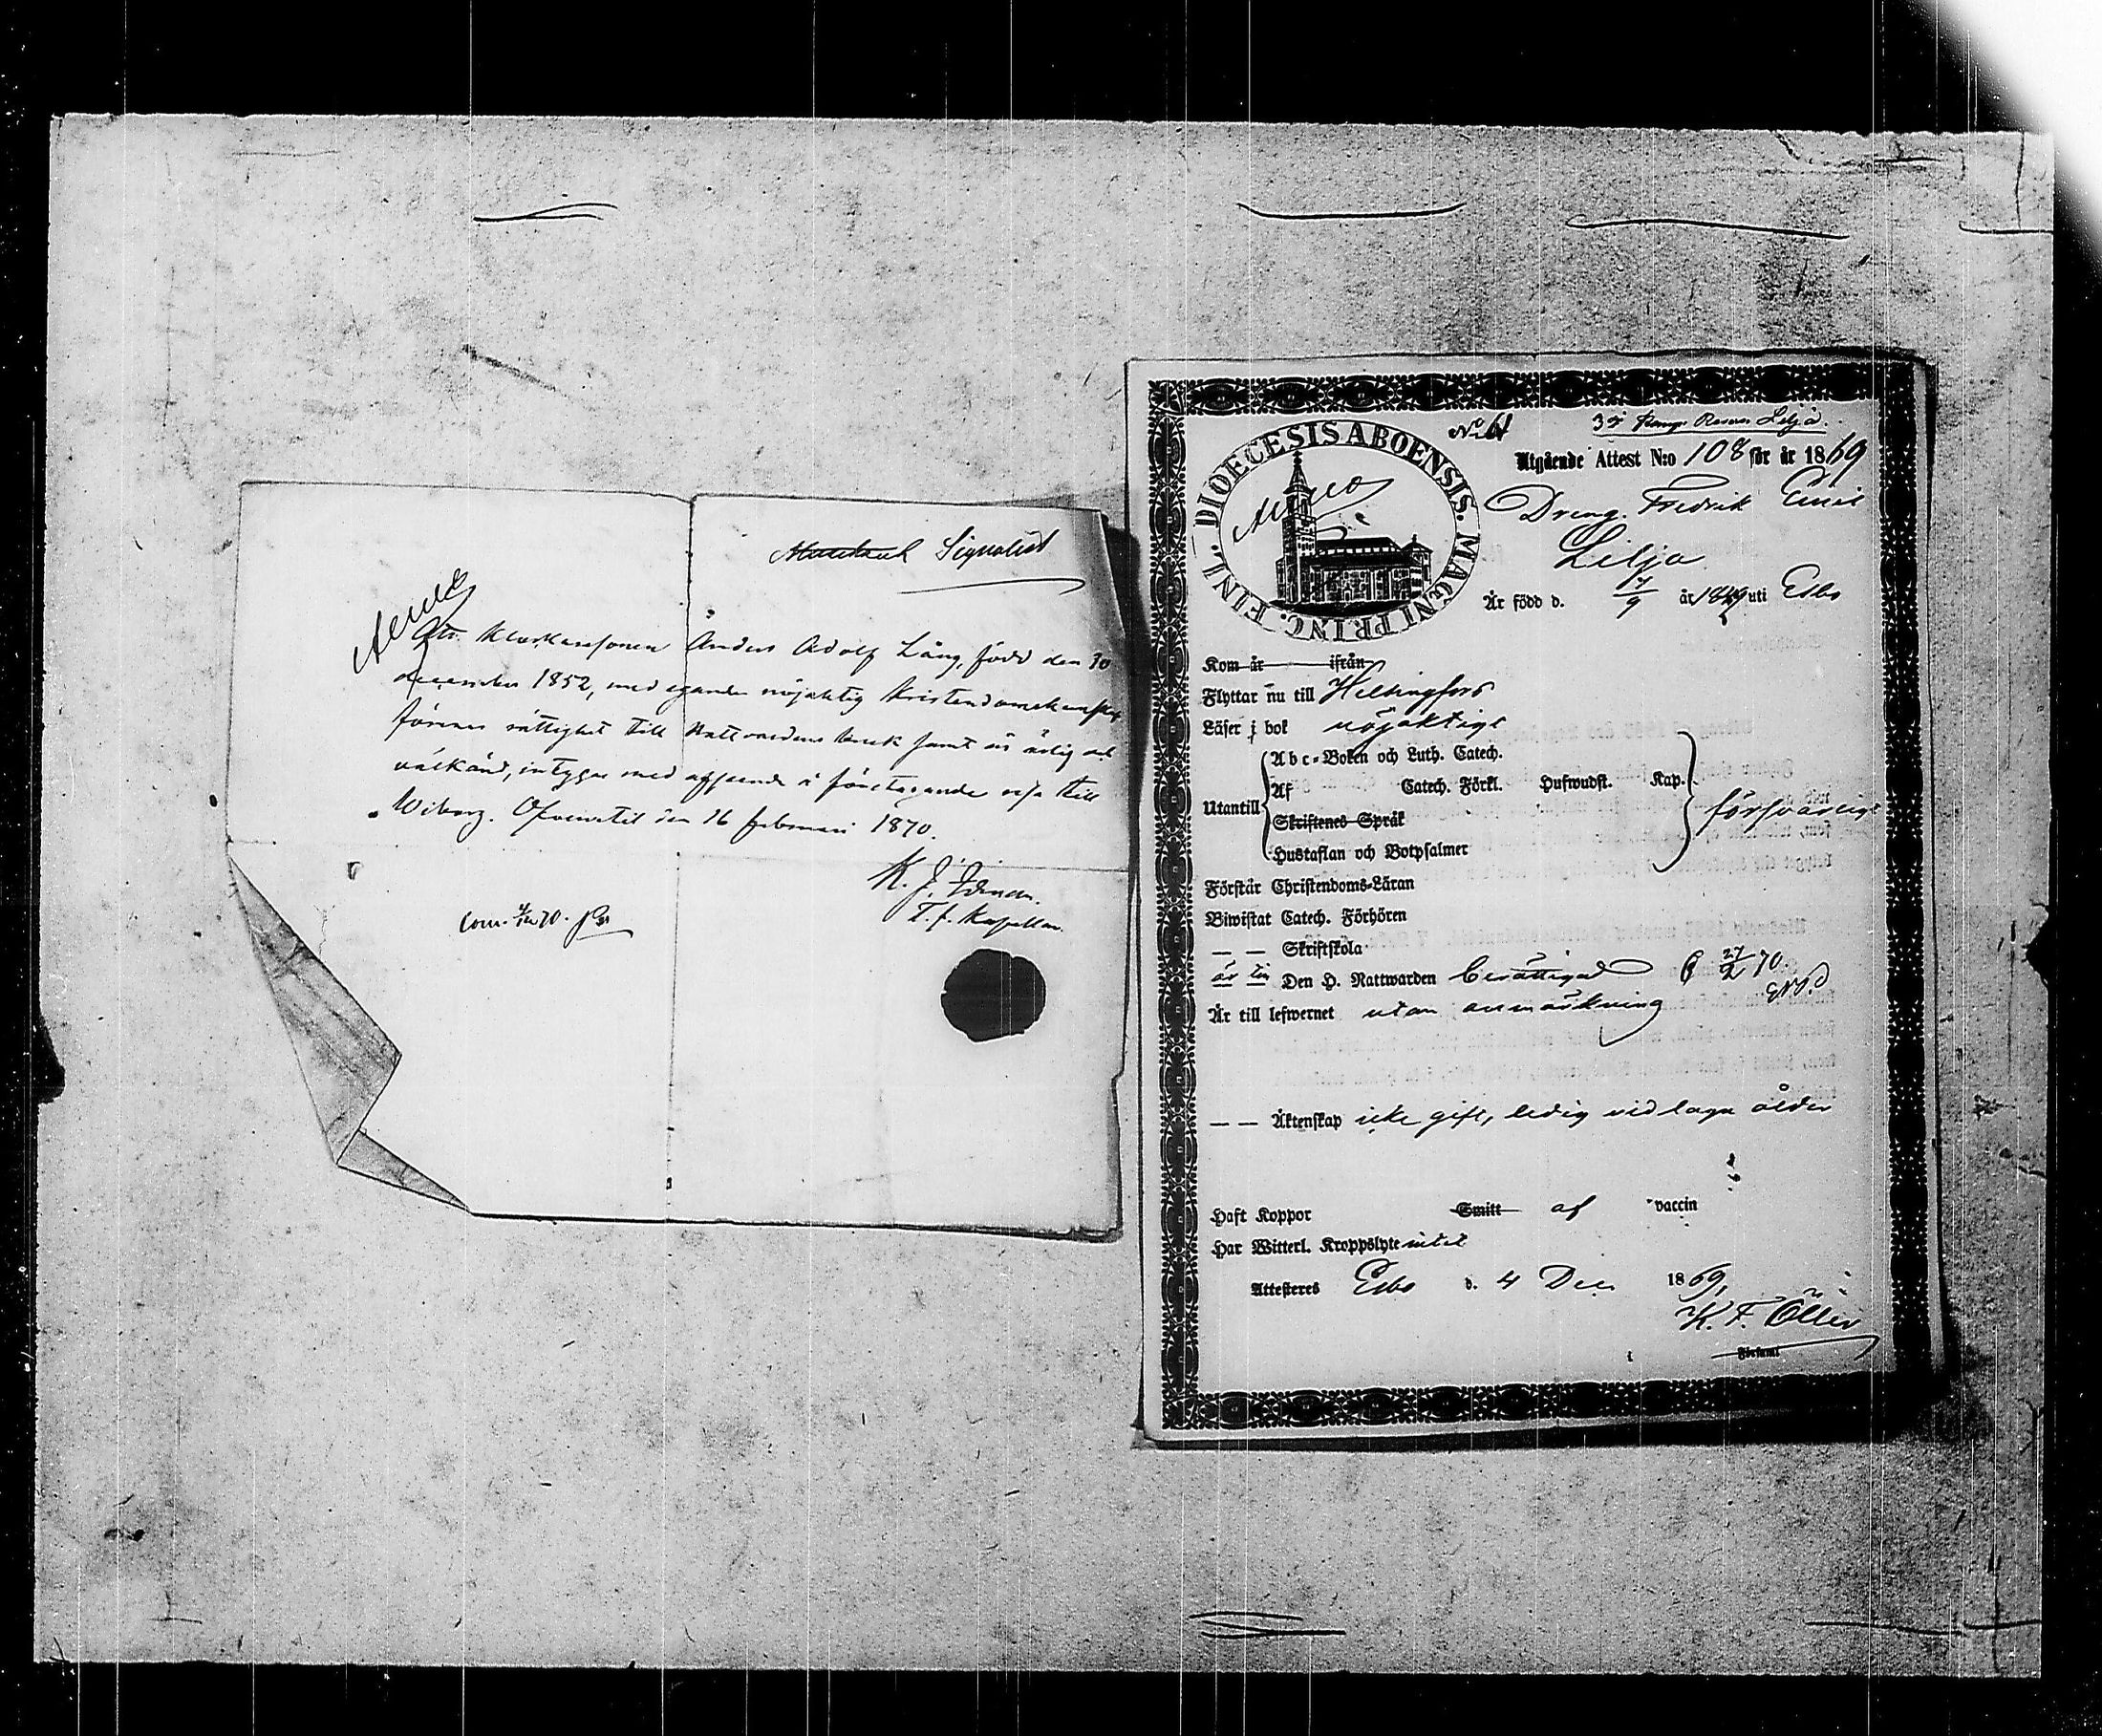 Signalist
Att Klockaresonen Anders Adolf Lång, född den 30
december 1852, med egande nöjaktig kristendomskunskap
förenar rättighet till Nattvardens bruk samt är ärlig och
välkänd, intygar med afseende å företagande resa till
Wiborg. Öfvermetil den 16 februari 1870.
K. J.
T. f. Kapellan
Com. 70.
No 61
3dj Komp. Lilja.
DIOECESIS ABOENSIS. MAGNI PRINC. FINL.
Utgående Attest N:o 108 för år 1869
Dreng. Fredrik Emil
Lilja
Är född d. 7/9 år 1849 uti Esbo
Kom år ifrån
Flyttar nu till Helsingfors
Läser i bok nöjaktigt
Abc-Boken och Luth. Catech.
Af Catech. Förkl. Hufwudst. Kap.
Utantill försvarligt
Skriftenes Språk
Hustaflan och Botpsalmer
Förstår Christendoms-Läran
Biwistat Catech. Förhören
— — Skriftskola
är till Den H. Nattwarden berättigad 27/2 70.
Är till lefwernet utan anmärkning
— — Äktenskap icke gift, ledig vid laga ålder
Haft Koppor Smitt af vaccin
Har Witterl. Kroppslyte intet
Attesteres Esbo d. 4 Dec. 1869,
K. F. Öller
Församl